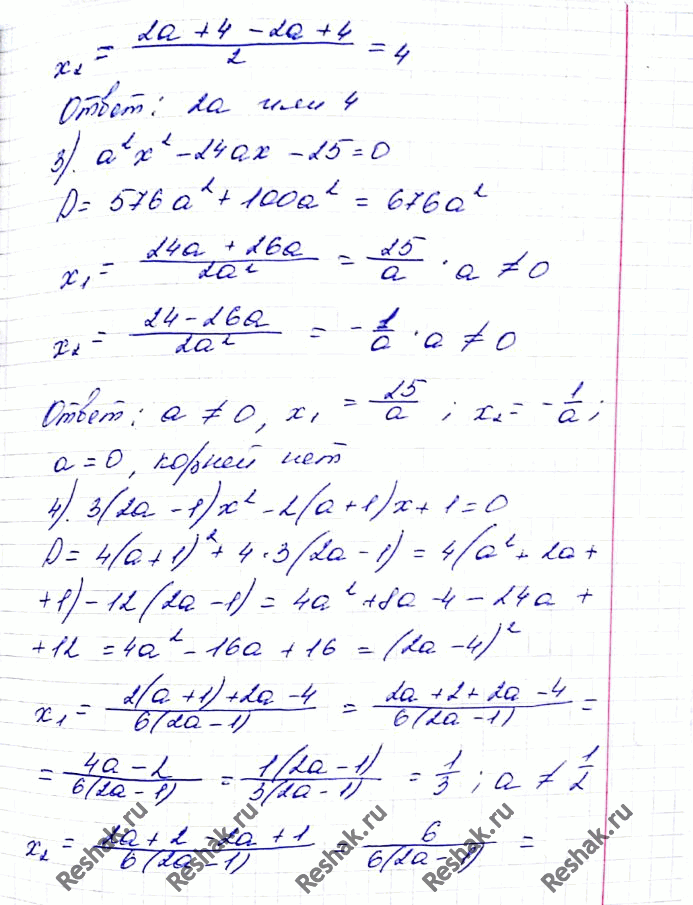 x₂ = (2a + 4 - 2a + 4)/2 = 4
Ответ: 2a или 4
3). a²x² - 24ax - 25 = 0
D = 576a² + 100a² = 676a²
x₁ = (24a + 26a)/(2a²) = 25/a · a ≠ 0
x₂ = (24 - 26a)/(2a²) = -1/a · a ≠ 0
Ответ: a ≠ 0, x₁ = 25/a ; x₂ = -1/a ;
a = 0, корней нет
4). 3(2a - 1)x² - 2(a + 1)x + 1 = 0
D = 4(a + 1)² + 4 · 3(2a - 1) = 4(a² + 2a +
+ 1) - 12(2a - 1) = 4a² + 8a - 4 - 24a +
+ 12 = 4a² - 16a + 16 = (2a - 4)²
x₁ = (2(a + 1) + 2a - 4)/(6(2a - 1)) = (2a + 2 + 2a - 4)/(6(2a - 1)) =
= (4a - 2)/(6(2a - 1)) = 1(2a - 1)/(3(2a - 1)) = 1/3 ; a ≠ 1/2
x₂ = (2a + 2 - 2a + 1)/(6(2a - 1)) = 6/(6(2a - 1)) =
Reshak.ru Reshak.ru Reshak.ru Reshak.ru Reshak.ru